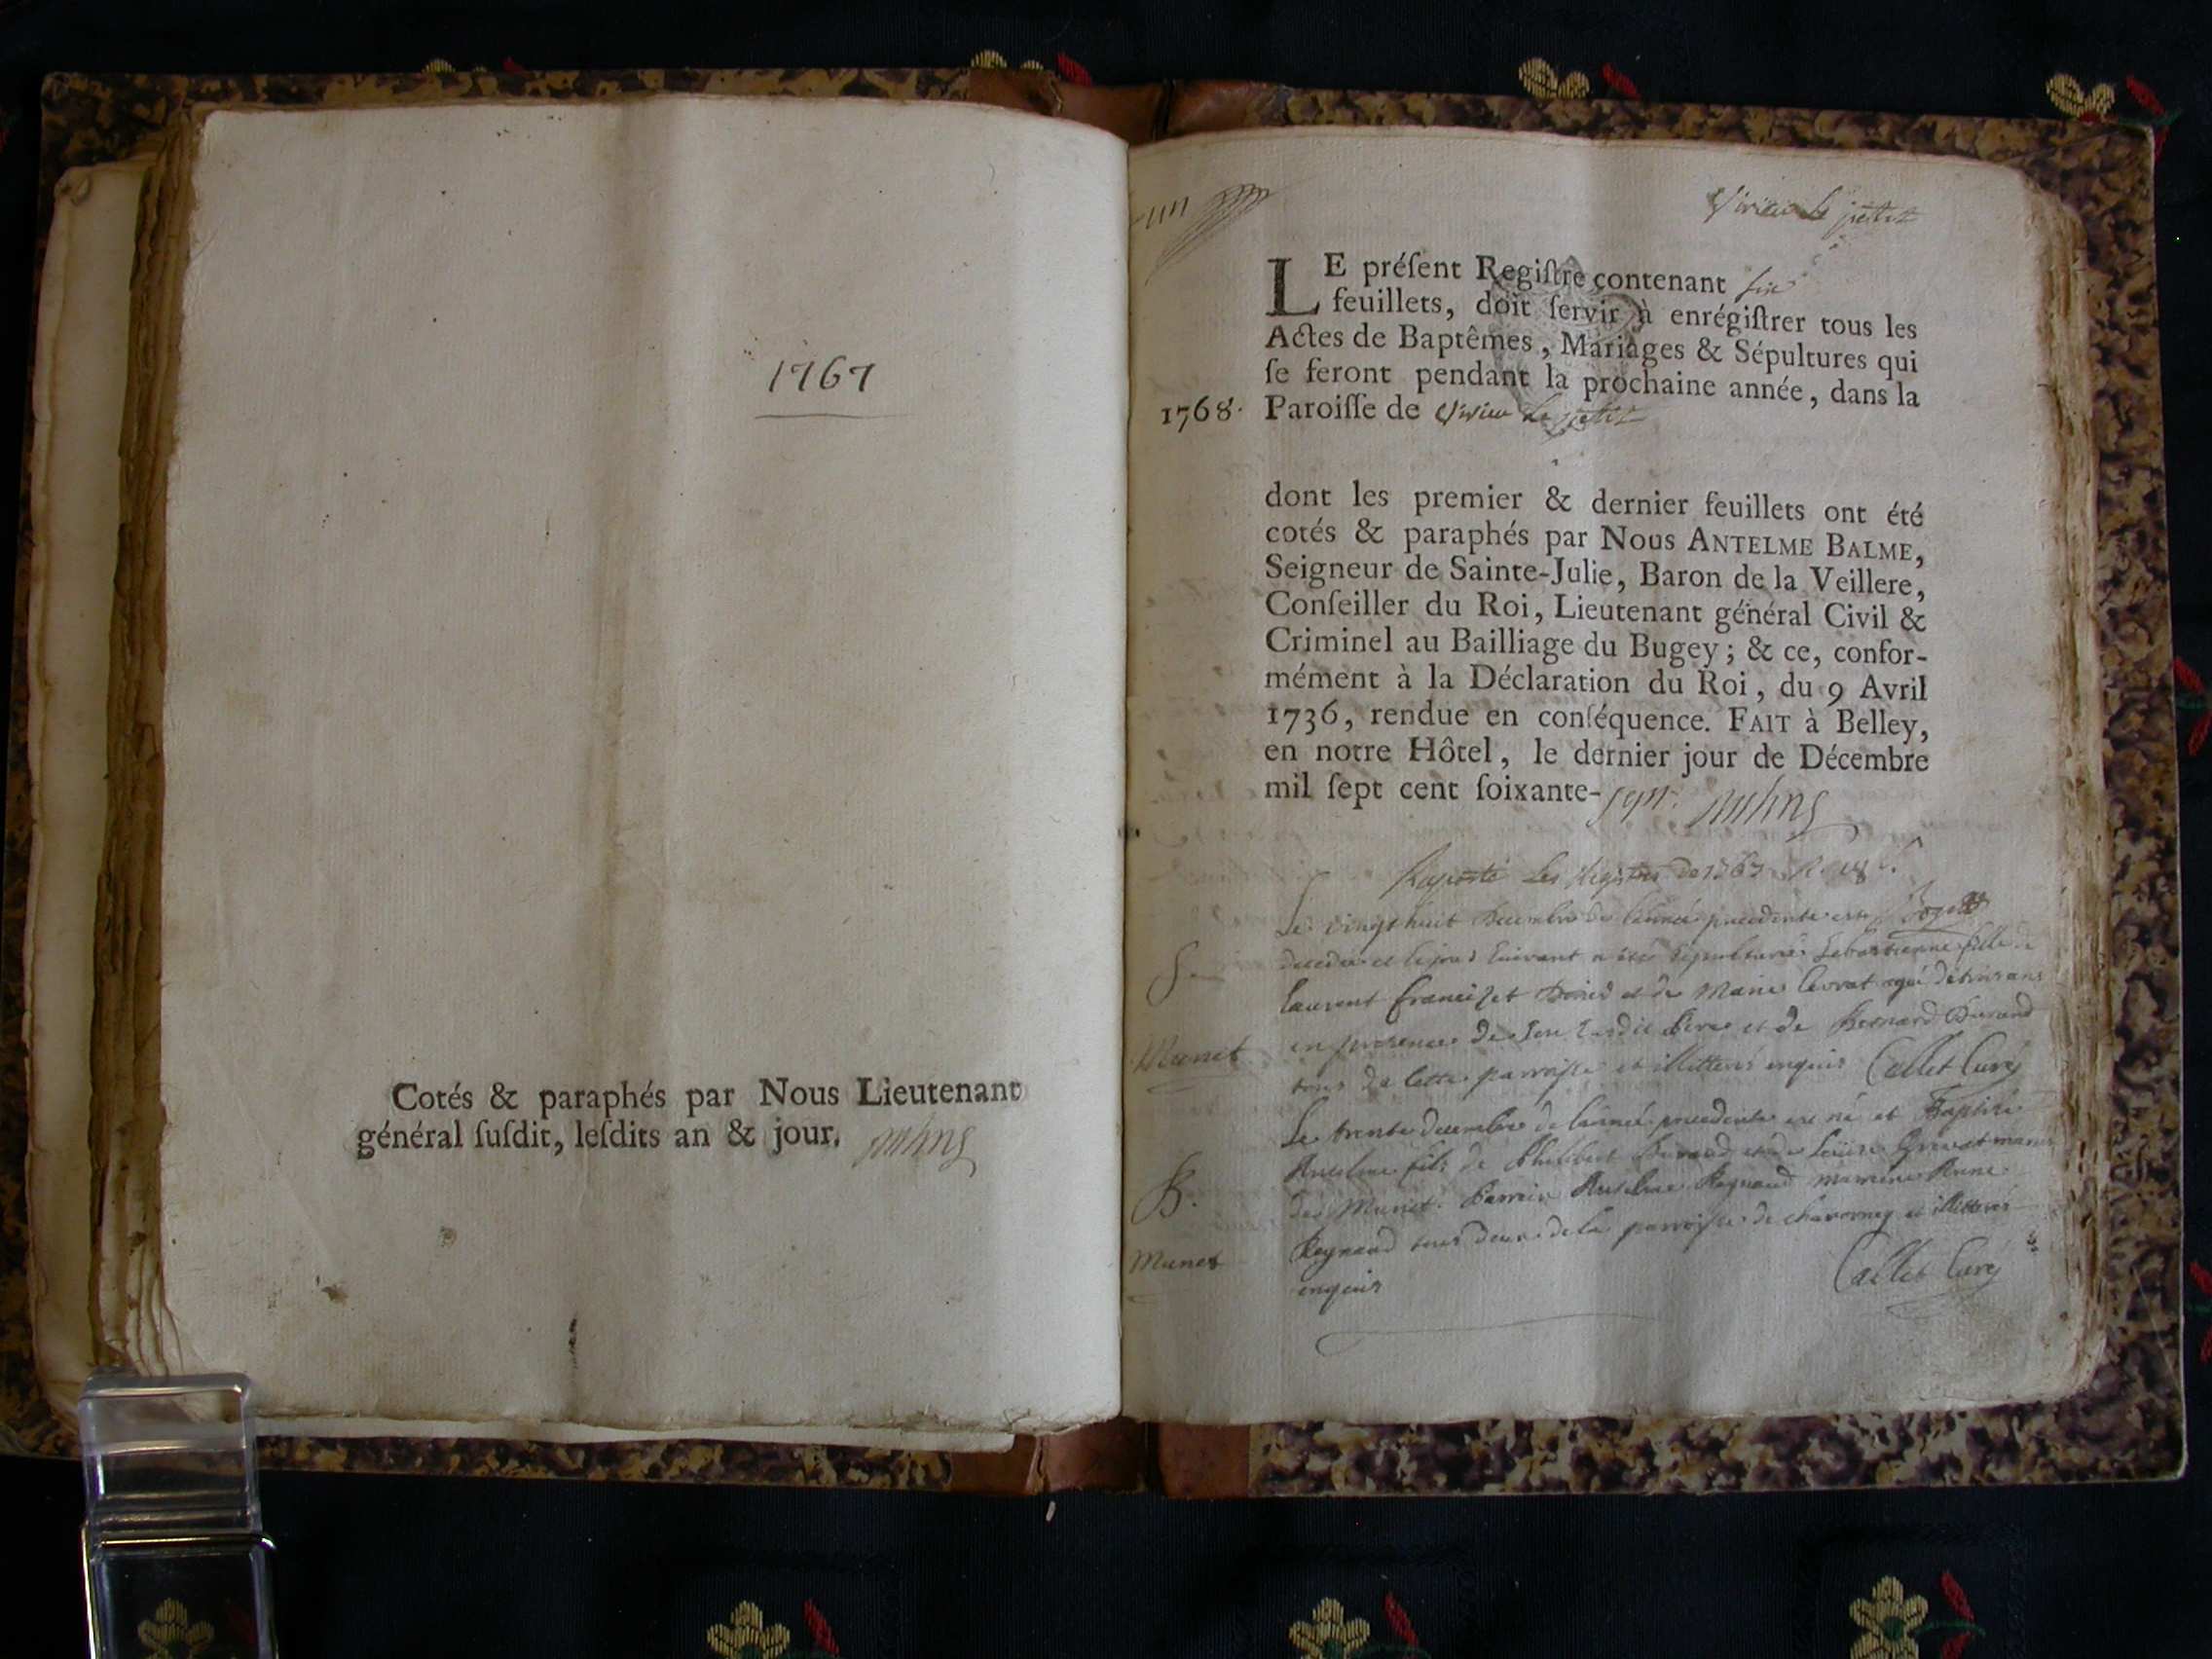 1767
Cotés & paraphés par Nous Lieutenant
général ſuſdit, leſdits an & jour.
un
Virieu Le petit
LE préſent Regiſtre contenant six
feuillets, doit ſervir à enrégiſtrer tous les
Actes de Baptêmes, Mariages & Sépultures qui
ſe feront pendant la prochaine année, dans la
1768. Paroiſſe de Virieu Le petit
dont les premier & dernier feuillets ont été
cotés & paraphés par Nous ANTELME BALME,
Seigneur de Sainte-Julie, Baron de la Veillere,
Conſeiller du Roi, Lieutenant général Civil &
Criminel au Bailliage du Bugey; & ce, confor-
mément à la Déclaration du Roi, du 9 Avril
1736, rendue en conſéquence. FAIT à Belley,
en notre Hôtel, le dernier jour de Décembre
mil ſept cent ſoixante-sept.
Raporté Les Registres de 1767
Le vingt huit Decembre de lannée precedente est
decedée et le jour suivant a été sepulturée Sebastienne fille de
S.
laurent franciset et de Marie levrat agée de trois ans
en presence de son susdit Pere et de Bernard Durand
Munet
tous de cette parroisse et illitterés enquis Callet Curé
Le trente decembre de lannée precedente est né et Baptisé
Anselme fils de Philibert Durand et de Loüise mariés
B.
de Munet. Parrain Anselme Reynaud marrene Anne
Reynaud tous deux de la parroisse de chavornay et illitterés
Munet
enquis Callet Curé